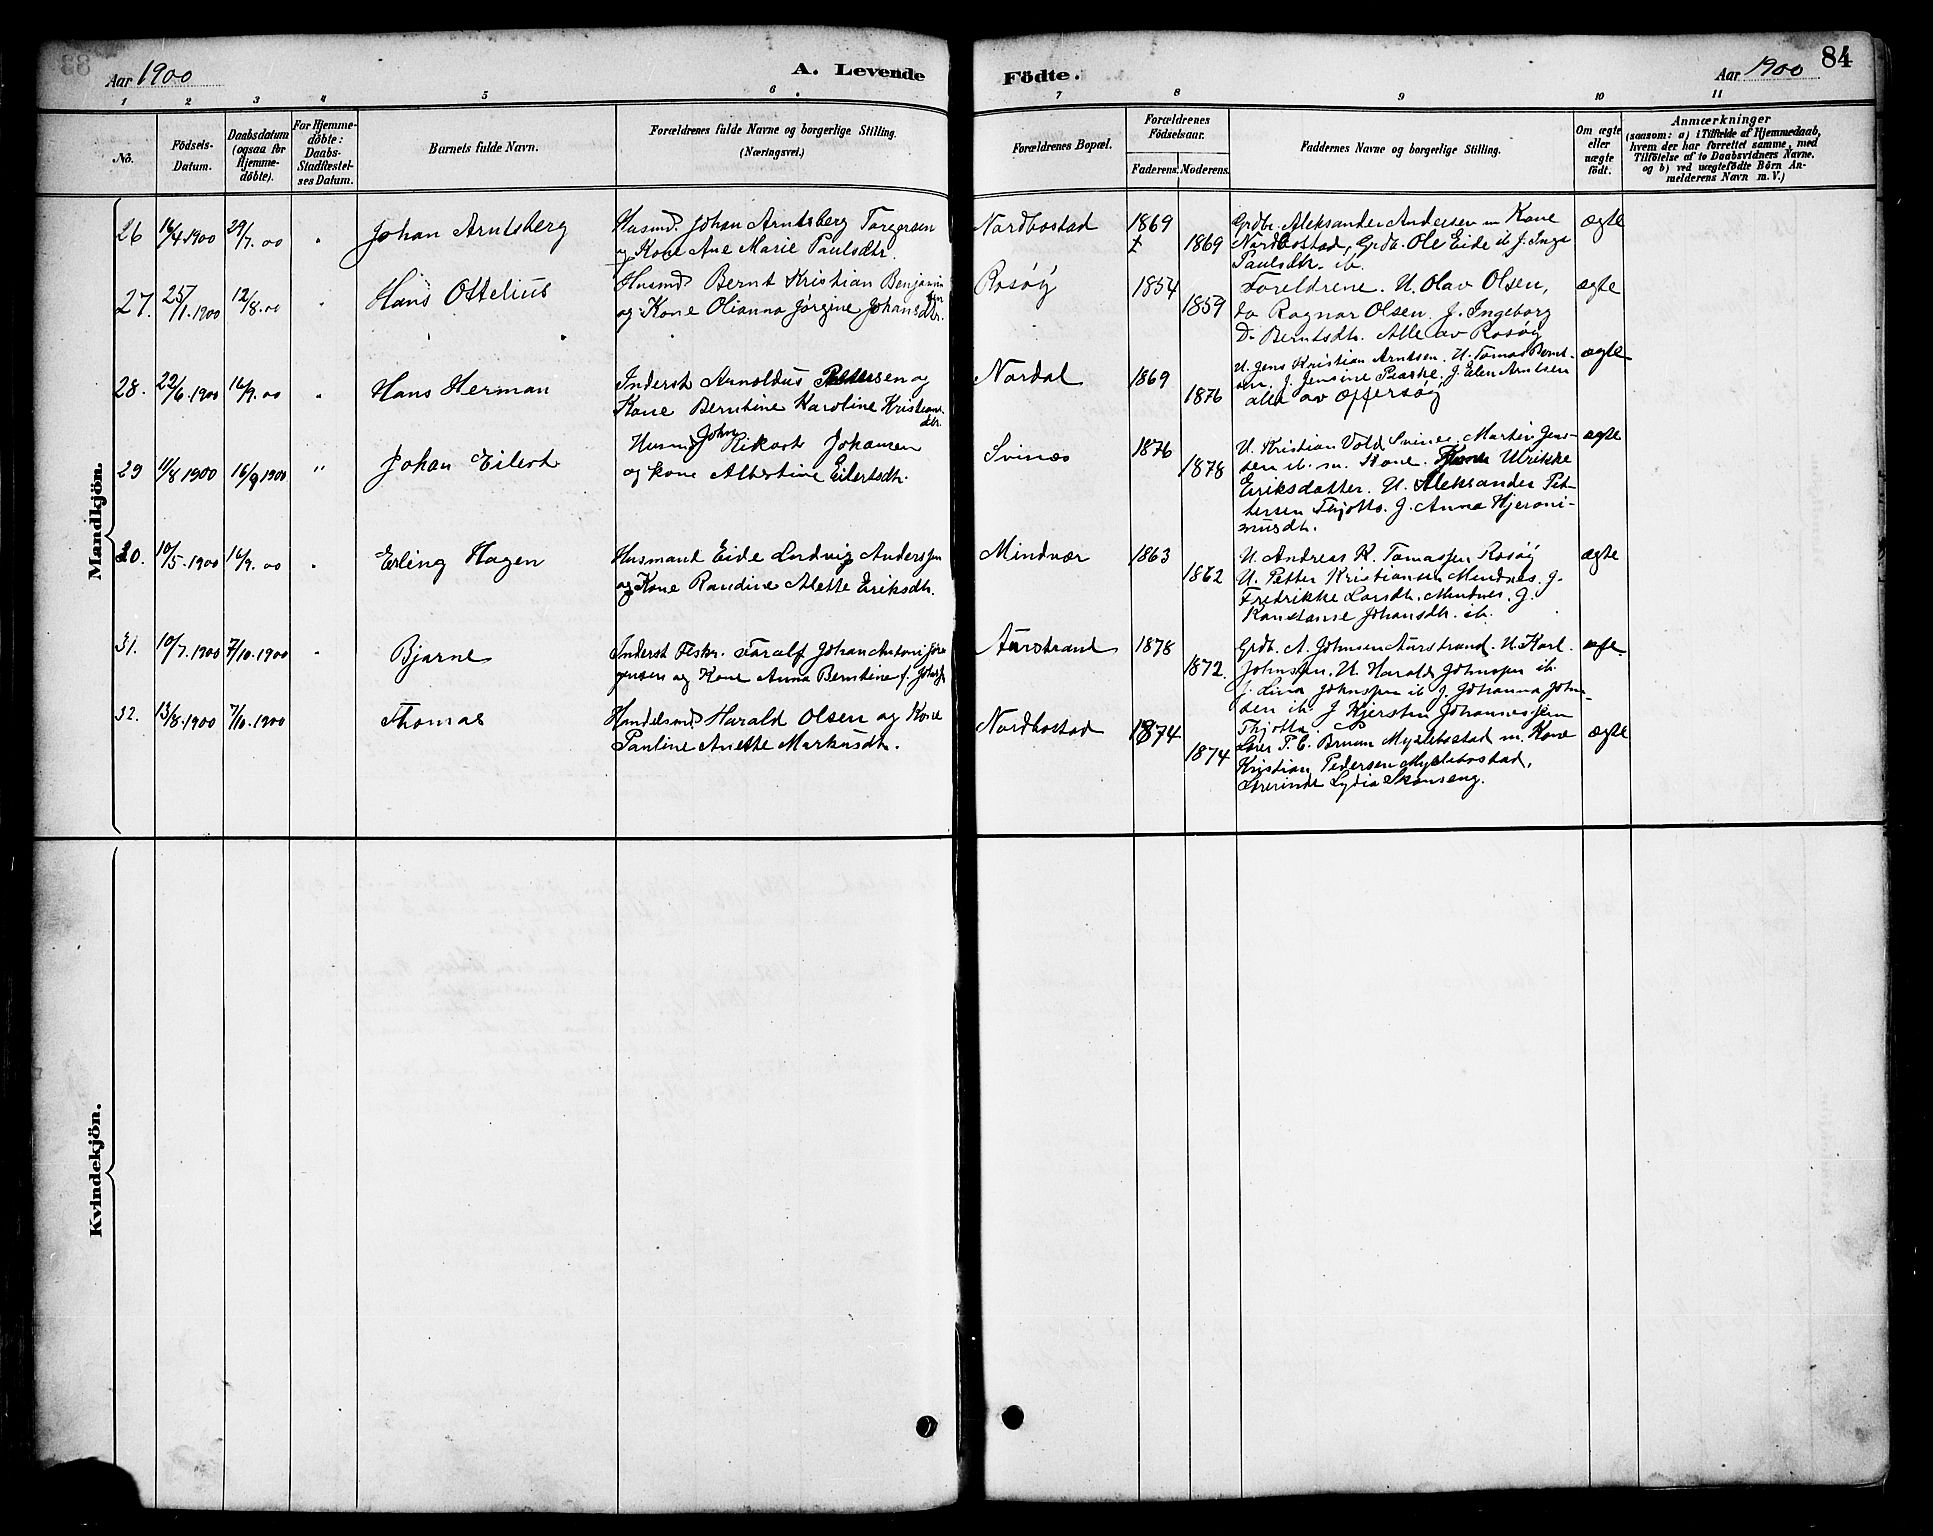 Aar 1900
A. Levende
Födte.
Aar 1900
84
1 2 3 4 5 6 7 8 9 10 11
No.
Födsels-
Datum.
Daabsdatum
(ogsaa for
Hjemme-
döbte).
For Hjemme-
döbte:
Daabs-
Stadfæstel-
ses Datum.
Barnets fulde Navn.
Forældrenes fulde Navne og borgerlige Stilling.
(Næringsvei.)
Forældrenes Bopæl.
Forældrenes
Födselsaar.
Faderens. Moderens.
Faddernes Navne og borgerlige Stilling.
Om ægte
eller
uægte
født.
Anmærkninger
(saasom: a) i Tilfælde af Hjemmedaab,
hvem der har forrettet samme, med
Tilföielse af to Daabsvidners Navne,
og b) ved uægtefödte Börn An-
melderens Navn m. V.)
Mandkjön.
26 16/4.1900 29/7.00 Johan Arntsberg
Husmd. Johan Arntsberg Torgersen
og Kone Ane Marie Paulsdtr.
Nordbostad 1869 1869
Grdb. Aleksander Andersen m Kone
Nordbostad, Grdb. Ole Eide ib J. Inga
Paulsdtr. ib.
ægte
27. 25/1.1900 12/8.00 Hans Ottelius
Husmd Bernt Kristian Benjamin
sen
og Kone Olianna Jørgine Johansdtr.
Rosøy 1854 1859
Foreldrene. U. Olav Olsen,
do Ragnar Olsen. J. Ingeborg
D. Berntsdtr. Alle av Rosøy
ægte
28. 22/6.1900 16/9.00 Hans Herman
Inderst Arnoldus Pettersen og
Kone Berntine Karoline Kristians
dtr.
Nordal 1869 1876
U. Jens Kristian Arntsen. U. Tomas Bernt-
sen. J. Jensine J. Elen Arntsen
alle av Offersøy
ægte
29 11/8 1900 16/9 1900 " Johan Eilert
Husmd John Rikart Johansen
og kone Albertine Eilertsdtr.
Svines 1876 1878
U. Kristian Vold Svines. Martin Jens-
sen ib. m. Kone. Ulrikke
Eriksdatter. U. Aleksander Pet-
tersen Thjotto. J. Anna Hjeroni-
musdtr.
ægte
30. 10/5.1900 16/9.00 Erling Hagen
Husmand Eide Ludvig Anderssen
og Kone Randine Alette Eriksdtr.
Mindvær 1863 1862
U. Andreas K. Tomassen Rosøy
U. Petter Kristiansen Mindnes. J.
Fredrikke Larsdtr. Mindnes. J.
Konstanse Johansdtr. ib.
ægte
31. 10/7.1900 7/10.1900 Bjarne
Inderst Fisker. Taralf Johan Antoni Jørg
gensen og Kone Anna Berntine f. Johns
Aurstrand 1878 1872.
Grdb. A. Johnsen Aurstrand. U. Karl
Johnssen. U. Harald Johnssen ib.
J. Lina Johnssen ib J. Johanna John-
sen ib. J Kjersten Johannessen
Thjotta.
ægte
32. 13/8.1900 7/10.1900 Thomas
Handelsmd Harald Olsen og Kone
Pauline Anette Markusdtr.
Nordbostad 1874 1874
Lærer P. C. Bruun Myklebostad m. Kone
Kristian Pedersen Myklebostad,
Lærerinde Lydia Skonseng.
ægte
Kvindekjön.